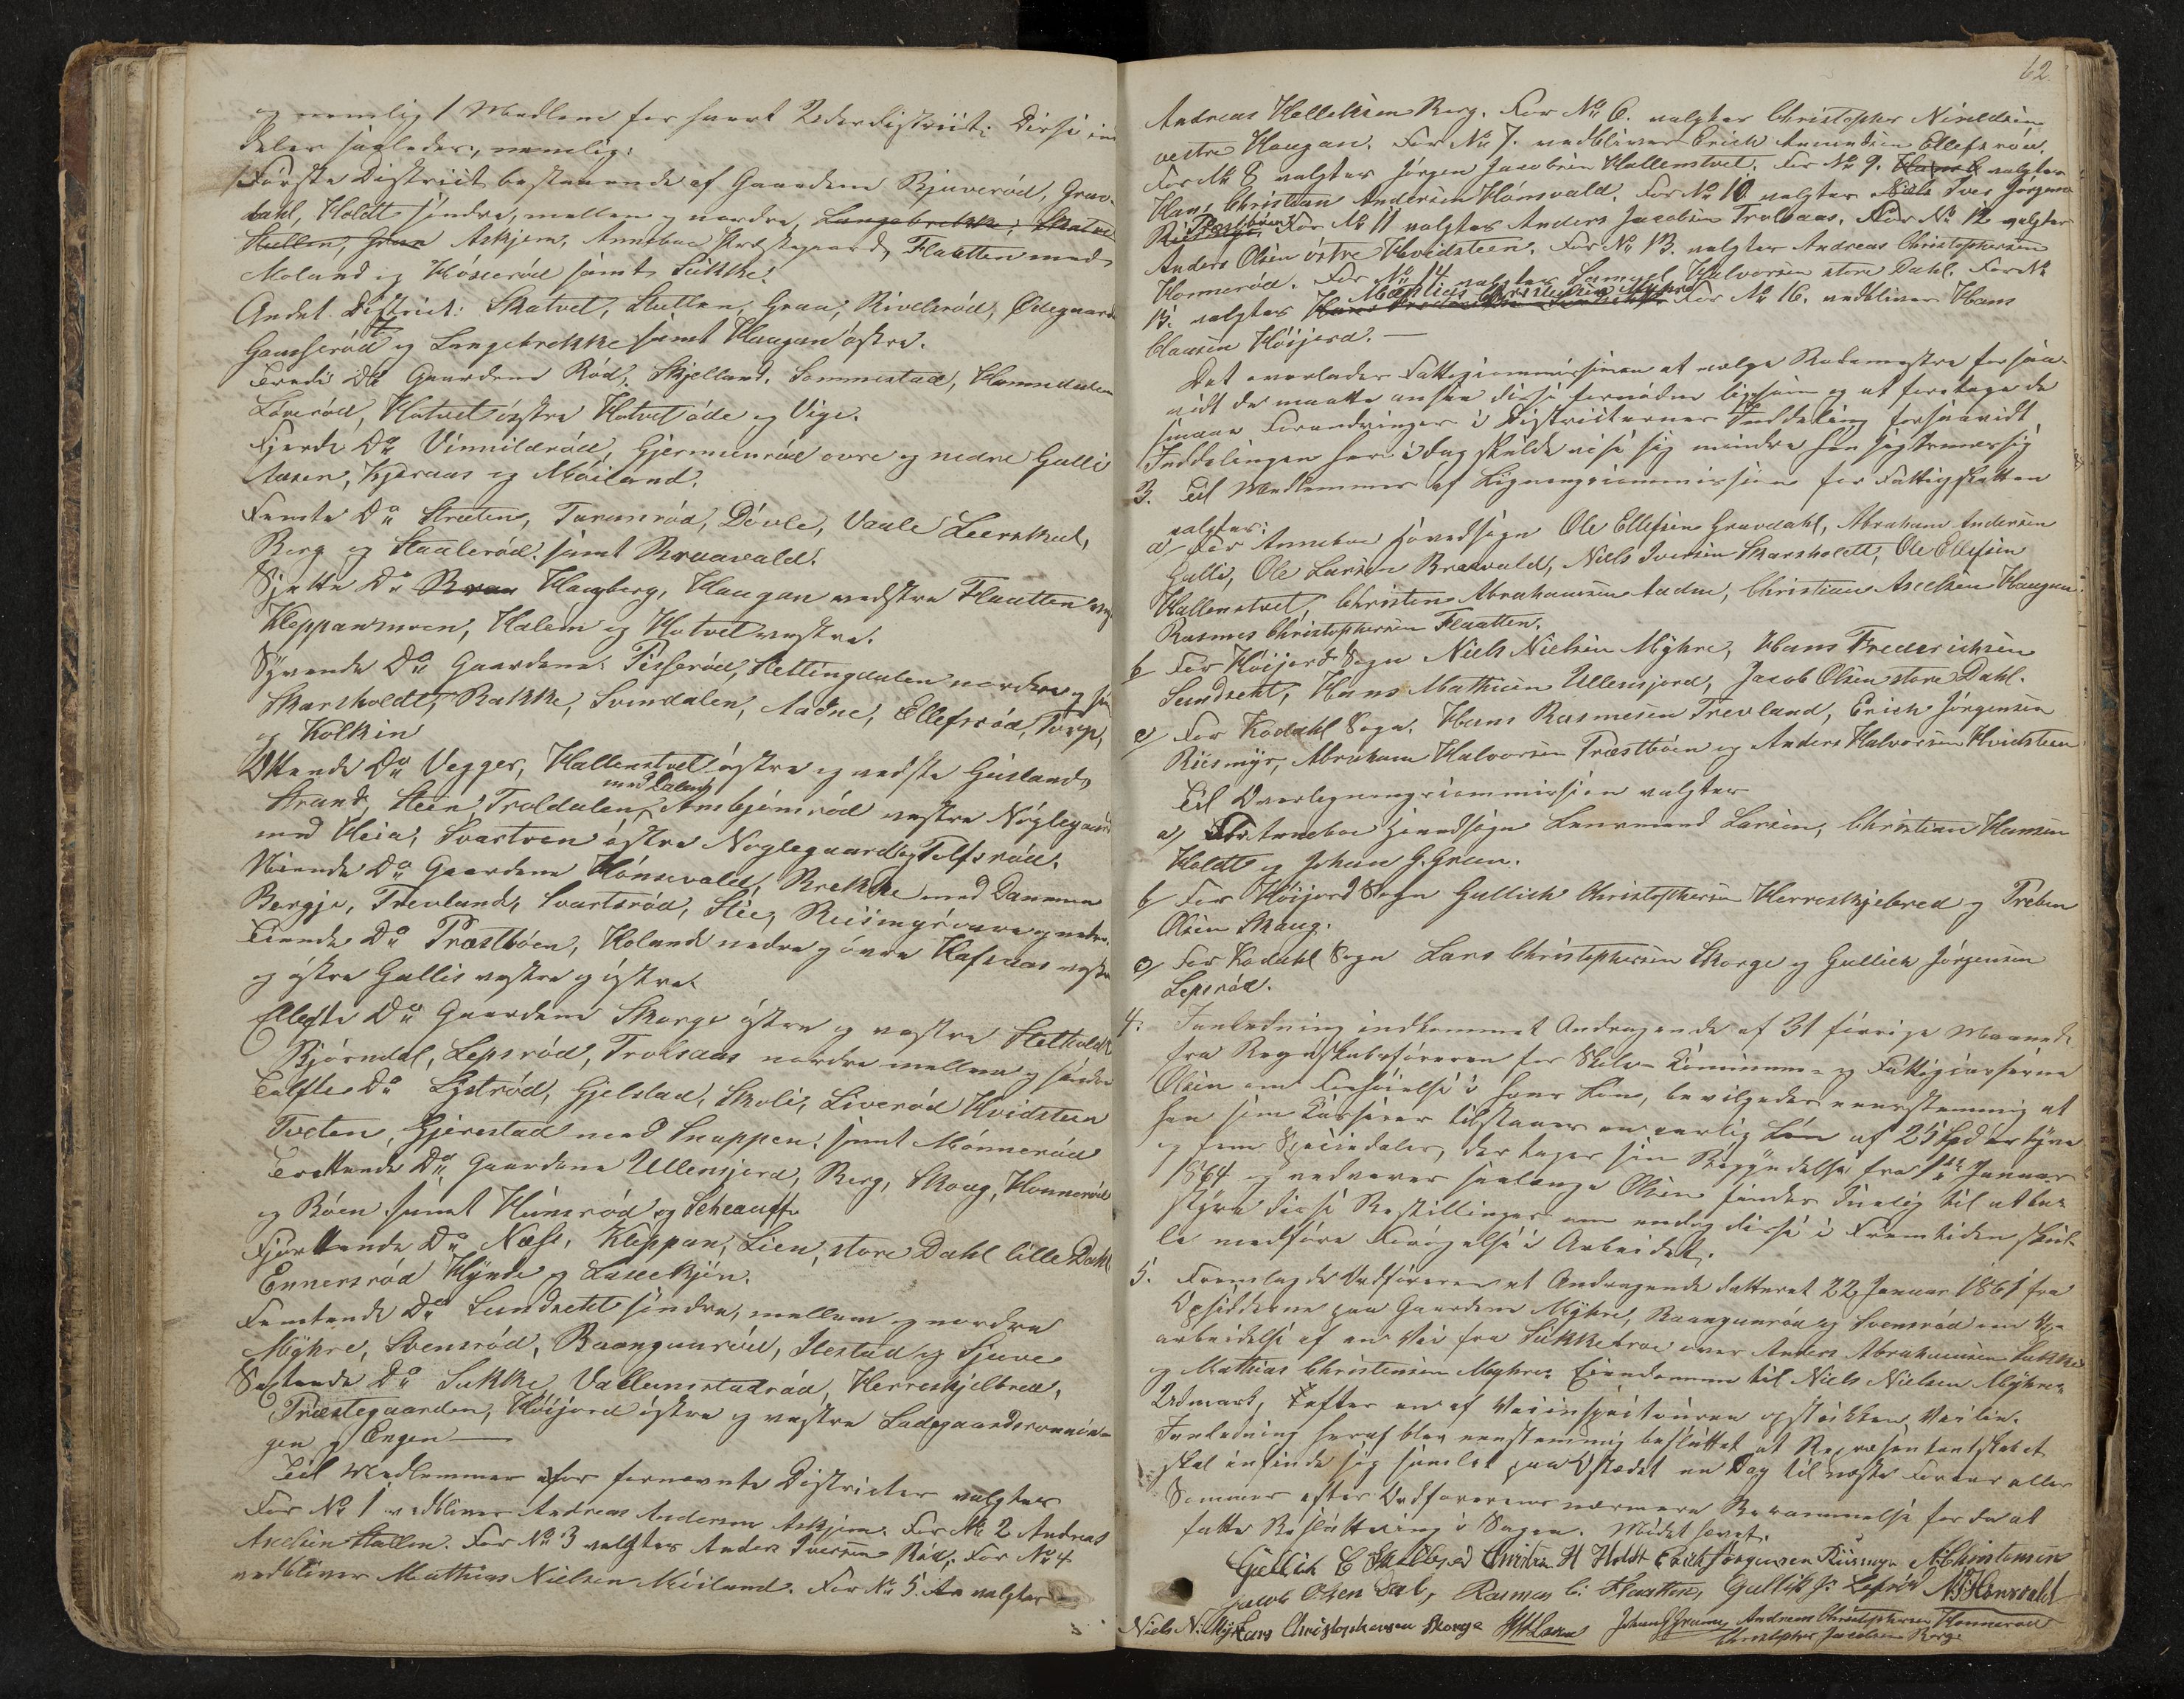 og nemlig 1 Medlem for hvert 2der District: Disse ind
deles saaledes, nemlig:
Første District bestaaende af Gaardene Bjuerød, Grav-
dahl, Holdt søndre, mellem og nordre, Langebrekke, Skatvet
Stullen, Graa Askjem, Anneboe Præstegaard, Flaatten med
Moland og Høsserød samt Sukke.
Andet District: Skatvet, Stullen, Graa, Rivelsrød, Ødegaard
Gaasserød og Langebrekke samt Haugan østre.
Tredie Do Gaardene Rød, Skjelland, Sommestad, Hanedalen
Løverød, Hotvet østre Hotvet øde og Vige.
Fjerde Do Vinnildrød, Gjermunrød øvre og nedre Gulli
Aasen, Kjæraas og Møiland.
Femte Do Stræten, Tuvanrød, Døvle, Vaale Leerskal,
Berg og Staalerød samt Bruavald.
Sjette Do Haugberg, Haugan vestre Flaatten og
Kleppanmoen, Halum og Hotvet vestre.
Syvende Do Gaardene Pisserød, Stettingdalen nordre og sø
Skarsholdt, Bakke, Svindalen, Aadne, Ellefsrød, Torp,
og Kolkin
Ottende Do Vegger, Hallenstvet østre og vestre Gusland,
med Dalen
Strand, Steen, Troldalen, Ambjørnrød vestre Nøglegaard
med Heia, Svartoen østre Nøglegaard og Tolfsrød.
Niende Do Gaardene Hønsvald, Brekke med Dammen
Bergje, Trevland, Svartsrød, Slie, Riismyr øvre og nedre.
Tiende Do Præstbøen, Holand nedre og øvre Hafsaas vestre
og østre Gallis vestre og østre
Ellefte Do Gaardene Skorge østre og vestre Stulholdt
Bjørndal, Lepsrød, Trolsaas nordre mellem og søndre
Tolfte Do Lystrød, Gjelstad, Skoli, Liverød Hvidsteen
Tveten, Gjerestad med Snappen samt Mønnerød
Trettende Do Gaardene Ullensjord, Berg, Skoug, Honnerød
og Bøen samt Himsrød og Scheauff
Fjortende Do Næss, Kleppan, Lien, store Dahl lille Dahl
Ennersrød Hynde og Laseekjøn.
Femtende Do Sundsett søndre, mellem og nordre
Myhre, Svensrød, Baangunrød, Ilestad og Sjuve
Sextende Do Sukke, Vallumstadrød, Herreskjelbred,
Præstegaarden, Høijord østre og vestre Ladegaardsrønnin-
gen og Engen
Til Medlemmer for fornævnte Districter valgtes
For No 1 vedbliver Andreas Andersen Askjem. For No 2 Andreas
Axelsen Stullen. For No 3 valgtes Anders Iversen Rød. For No 4
vedbliver Mathias Nielsen Møiland. For No 5. valgtes
62.
Andreas Hellebsen Berg. For No 6. valgtes Christopher Nirildsen
vestre Haugan. For No 7. vedbliver Erich Amundsen Ellefsrød.
For No 8 valgtes Jørgen Jacobsen Hallenstvet. For No 9. valgtes
Hans Christian Andersen Hønsvald. For No 10 valgtes Iver Jørgensen
Præstbøen For No 11 valgtes Anders Jacobsen Trolsaas. For No 12 valgtes
Anders Olsen østre Hvidsteen. For No 13. valgtes Andreas Christophersen
Honnerød. For No 14 valgtes Samuel Halvorsen store Dahl. For No
15. valgtes Mathias Christensen Myhre For No 16. vedbliver Hans
Clausen Høijord.
Det overlades Fattigcommissionen at vælge Rodemestre forsaa-
vidt de maatte ansee disse fornødne ligesom og at foretage de
smaae Forandringer i Districternes Inddeling forsaavidt
Inddelingen her i Dag skulde vise sig mindre hensigtsmæssig
3. Til Medlemmer af Ligningscommission for Fattigskatten
valgtes:
a/ For Anneboe Hovedsogn Ole Ellefsen Gravdahl, Abraham Andersen
Gulli, Ole Larsen Bruavald, Niels Iversen Skarsholdt, Ole Ellefsen
Hallenstvet, Christen Abrahamsen Aadne, Christian Axelsen Haugan
Rasmus Christophersen Flaatten.
b For Høijord Sogn Niels Nielsen Myhre, Hans Frederichsen
Sundseth, Hans Mathisen Ullensjord, Jacob Olsen store Dahl.
c/ For Kodahl Sogn. Hans Rasmusen Trevland, Erich Jørgensen
Riismyr, Abraham Halvorsen Præstbøen og Anders Halvorsen Hvidsteen
Til Overligningscommission valgtes
a/ For Anneboe Hovedsogn Lensmand Larsen, Christian Hansen
Holdt og Johan G. Gran.
b For Høijord Sogn Gullich Christophersen Herreskjelbred og Preben
Olsen Skaug.
c/ For Kodahl Sogn Lars Christophersen Skorge og Gullich Jørgensen
Lepsrød.
4. I Anledning indkommet Andragende af 31 forrige Maaned
fra Regnskabsføreren for Skole- Kommune- og Fattigkasserne
Olsen om Forhøielse i hans Løn, bevilgedes eenstemmig at
han som Kasserer tilstaaes en aarlig Løn af 25 Spd er tyve
og fem Speciedaler, der tager sin Begyndelse fra 1ste Januar
1864 og vedvarer saalænge Olsen findes duelig til at be-
styre disse Bestillinger om endog disse i Fremtiden skul-
le medføre Forøgelse i Arbeidet.
5. Fremlagde Ordføreren et Andragende datteret 22 Januar 1861 fra
Opsidderne paa Gaardene Myhre, Baangunrød og Svensrød om Op-
arbeidelse af en Vei fra Sukkebroe over Anders Abrahamsen Sukkes
og Mathias Christensen Myhres Eiendomme til Niels Nielsen Myhres
Udmark, efter en af Veiinspecteuren opstukken Veilin.
I Anledning heraf blev eenstemmig besluttet at Repræsentantskabet
skal indfinde sig samlet paa Aastædet en Dag til næste Foraar eller
Sommer efter Ordførerens nærmere Berammelse for da at
fatte Beslutning i Sagen. Mødet hævet.
Gullich C Skielbred Christian H Holdt Erich Jørgensen Riismyr A Christensen
Jacob Olsen Dal, Rasmus C. Flaatten, Gullik Jr Lepsrød Honsvald
Niels N. Myhre Lars Christophersen Skorge Larsen Johan G Grane Andreas Christophersen Honnerød
Christopher Jacobsen Berge